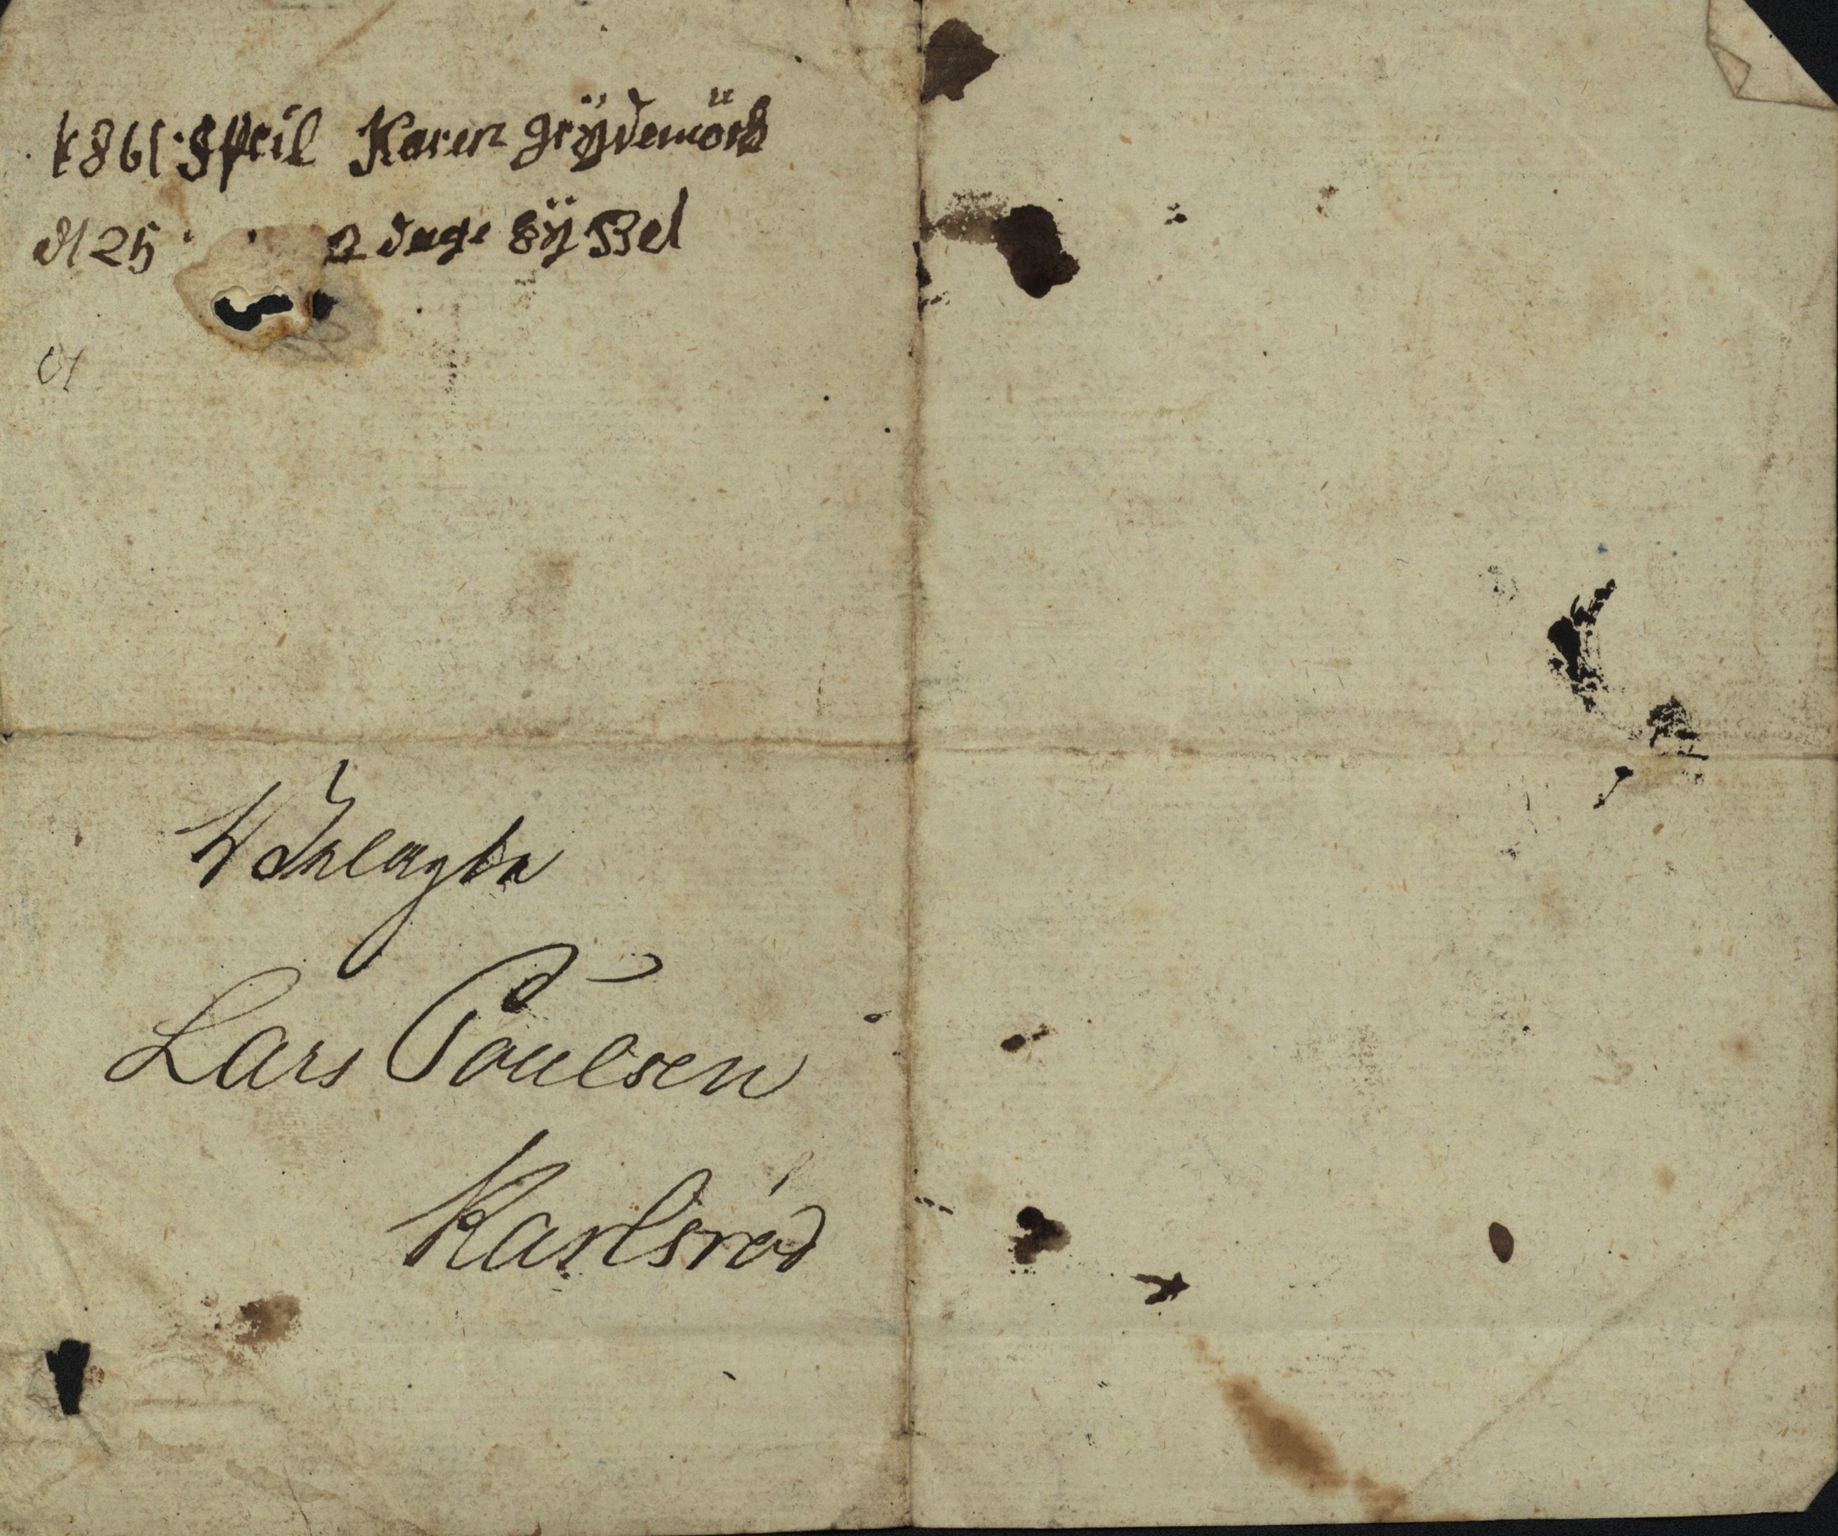 1861 April Karen Gryÿdemörk
d 25 2 dage Syÿssel
d
Velagte
Lars Poulsen
Karlsröd